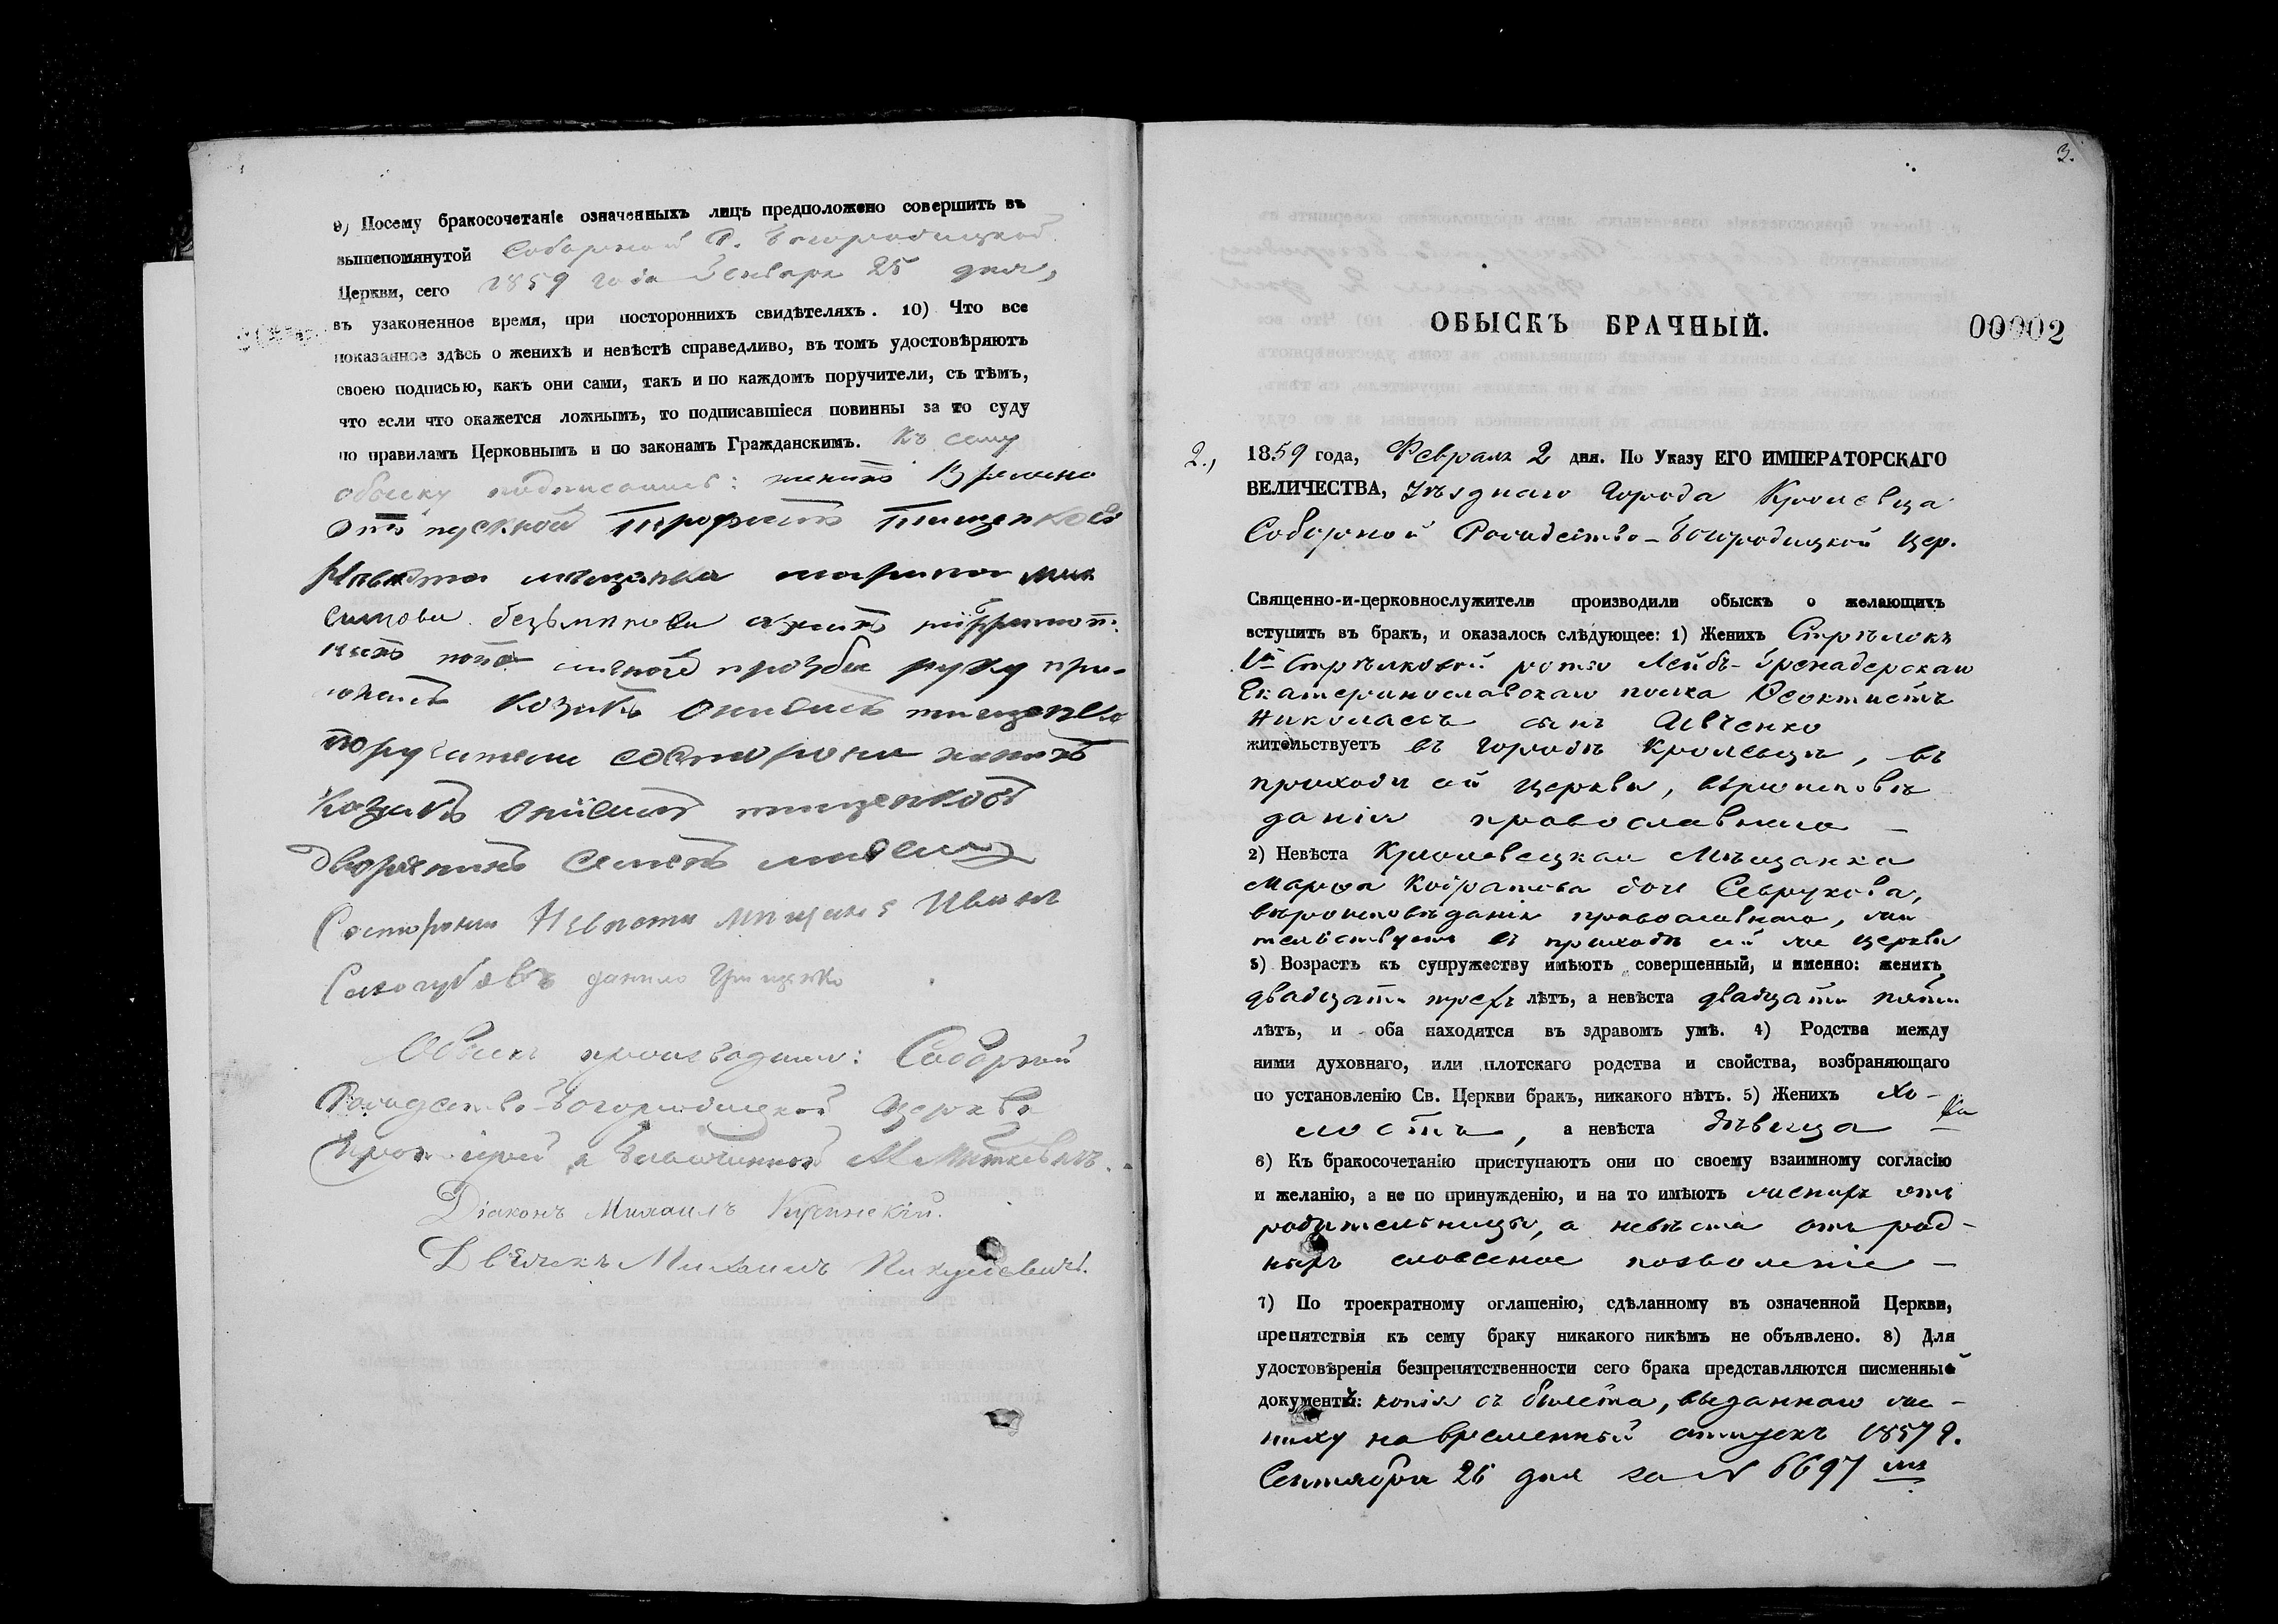 9) Посему бракосочетаніе означенныхъ лицъ предположено совершить въ
вышепомянутой Соборной Р. Богородицкой
Церкви, сего 1859 года Января 25 дня,
въ узаконенное время, при постороннихъ свидѣтеляхъ. 10) Что все
показанное здѣсь о женихѣ и невѣстѣ справедливо, въ томъ удостовѣряютъ
своею подписью, какъ они сами, такъ и по каждомъ поручители, съ тѣмъ,
что если что окажется ложнымъ, то подписавшіеся повинны за то суду
по правиламъ Церковнымъ и по законамъ Гражданскимъ. Къ сему
обыску подписались: женихъ Времено
отъпускной Трофимъ Тищенковъ
мещанка марина
личной прозбы руку при-
козакъ тищенко
поручители состороны
Козакъ тищенковъ
дворянинъ Семенъ
Состороны Невѣсты мѣщане Иванъ
данило Грищенко
Обыскъ производили: Соборной
Рождество-Богородицкой Церкви
Протоіерей и Благочинный
Діаконъ Михаилъ
Михаилъ
3.
ОБЫСКЪ БРАЧНЫЙ.
00002
2., 1859 года, Февраля 2 дня. По Указу ЕГО ИМПЕРАТОРСКАГО
ВЕЛИЧЕСТВА, Уѣзднаго Города Кролевца
Соборной Рождество-Богородицкой цер.
Священно-и-церковнослужители производили обыскъ о желающихъ
вступить въ бракъ, и оказалось слѣдующее: 1) Женихъ Стрѣлокъ
1й Стрѣлковой роты Лейбъ-Гренадерскаго
Екатеринославскаго полка Ѳеоктистъ
Николаевъ сынъ Ивченко
жительствуетъ въ городѣ Кролевцѣ, въ
приходѣ сей церкви, вѣроисповѣ
данія православнаго –
2) Невѣста Кролевецкая Мѣщанка
Марѳа Кодратова дочь Севрукова,
вѣроисповѣданія православнаго, жи
тельствуетъ въ приходѣ сей же церкви
3) Возрастъ къ супружеству имѣютъ совершенный, и именно: женихъ
двадцати трехъ лѣтъ, а невѣста двадцати пяти
лѣтъ, и оба находятся въ здравомъ умѣ. 4) Родства между
ними духовнаго, или плотскаго родства и свойства, возбраняющаго
по установленію Св. Церкви бракъ, никакого нѣтъ. 5) Женихъ хо-
лостъ, а невѣста дѣвица
6) Къ бракосочетанію приступаютъ они по своему взаимному согласію
и желанію, а не по принужденію, и на то имѣютъ женихъ отъ
родительницы, а невѣста отъ род-
ныхъ словесное позволеніе –
7) По троекратному оглашенію, сдѣланному въ означенной Церкви,
препятствія къ сему браку никакого никѣмъ не объявлено. 8) Для
удостовѣренія безпрепятственности сего брака представляются писменный
документъ: копія съ билета, выданнаго же-
ниху на временный отпускъ 1857 г.
Сентября 26 дня за № 6697